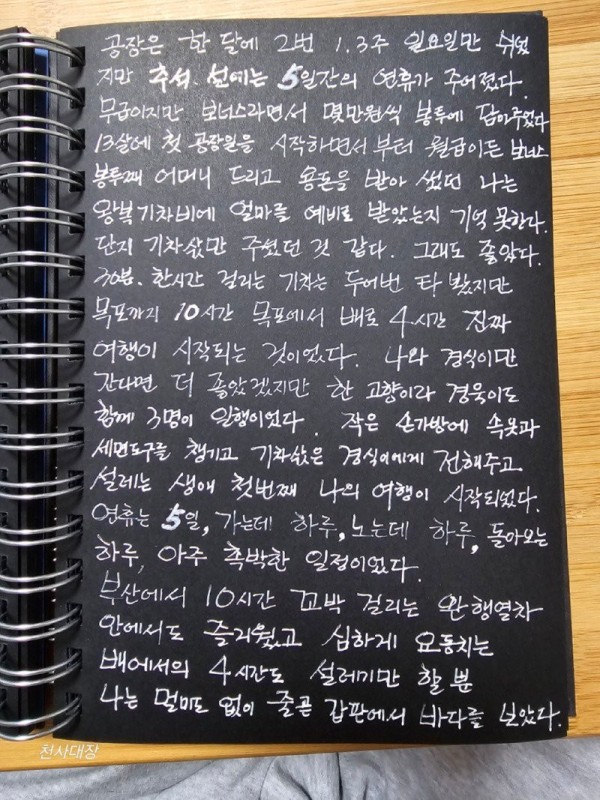 공장은 한 달에 2번 1.3주 일요일만 쉬었
지만 추석 설에는 5일간의 연휴가 주어졌다.
무급이지만 보너스라면서 몇만원씩 봉투에 담아주었다
13살에 첫 공장일을 시작하면서부터 월급이든 보너스
봉투째 어머니 드리고 용돈을 받아 썼던 나는
왕복기차비에 얼마를 예비로 받았는지 기억 못한다.
단지 기차삯만 주셨던 것 같다. 그래도 좋았다.
30분. 한시간 걸리는 기차는 두어번 타 봤지만
목포까지 10시간 목포에서 배로 4시간 진짜
여행이 시작되는 것이었다. 나와 경식이만
간다면 더 좋았겠지만 한 고향이라 경욱이도
함께 3명이 일행이었다. 작은 손가방에 속옷과
세면도구를 챙기고 기차삯은 경식이에게 전해주고
설레는 생애 첫번째 나의 여행이 시작되었다.
연휴는 5일, 가는데 하루, 노는데 하루, 돌아오는
하루, 아주 촉박한 일정이었다.
부산에서 10시간 꼬박 걸리는 완행열차
안에서도 즐거웠고 심하게 요동치는
배에서의 4시간도 설레기만 할 뿐
나는 멀미도 없이 줄곧 갑판에서 바다를 보았다.
천사대장